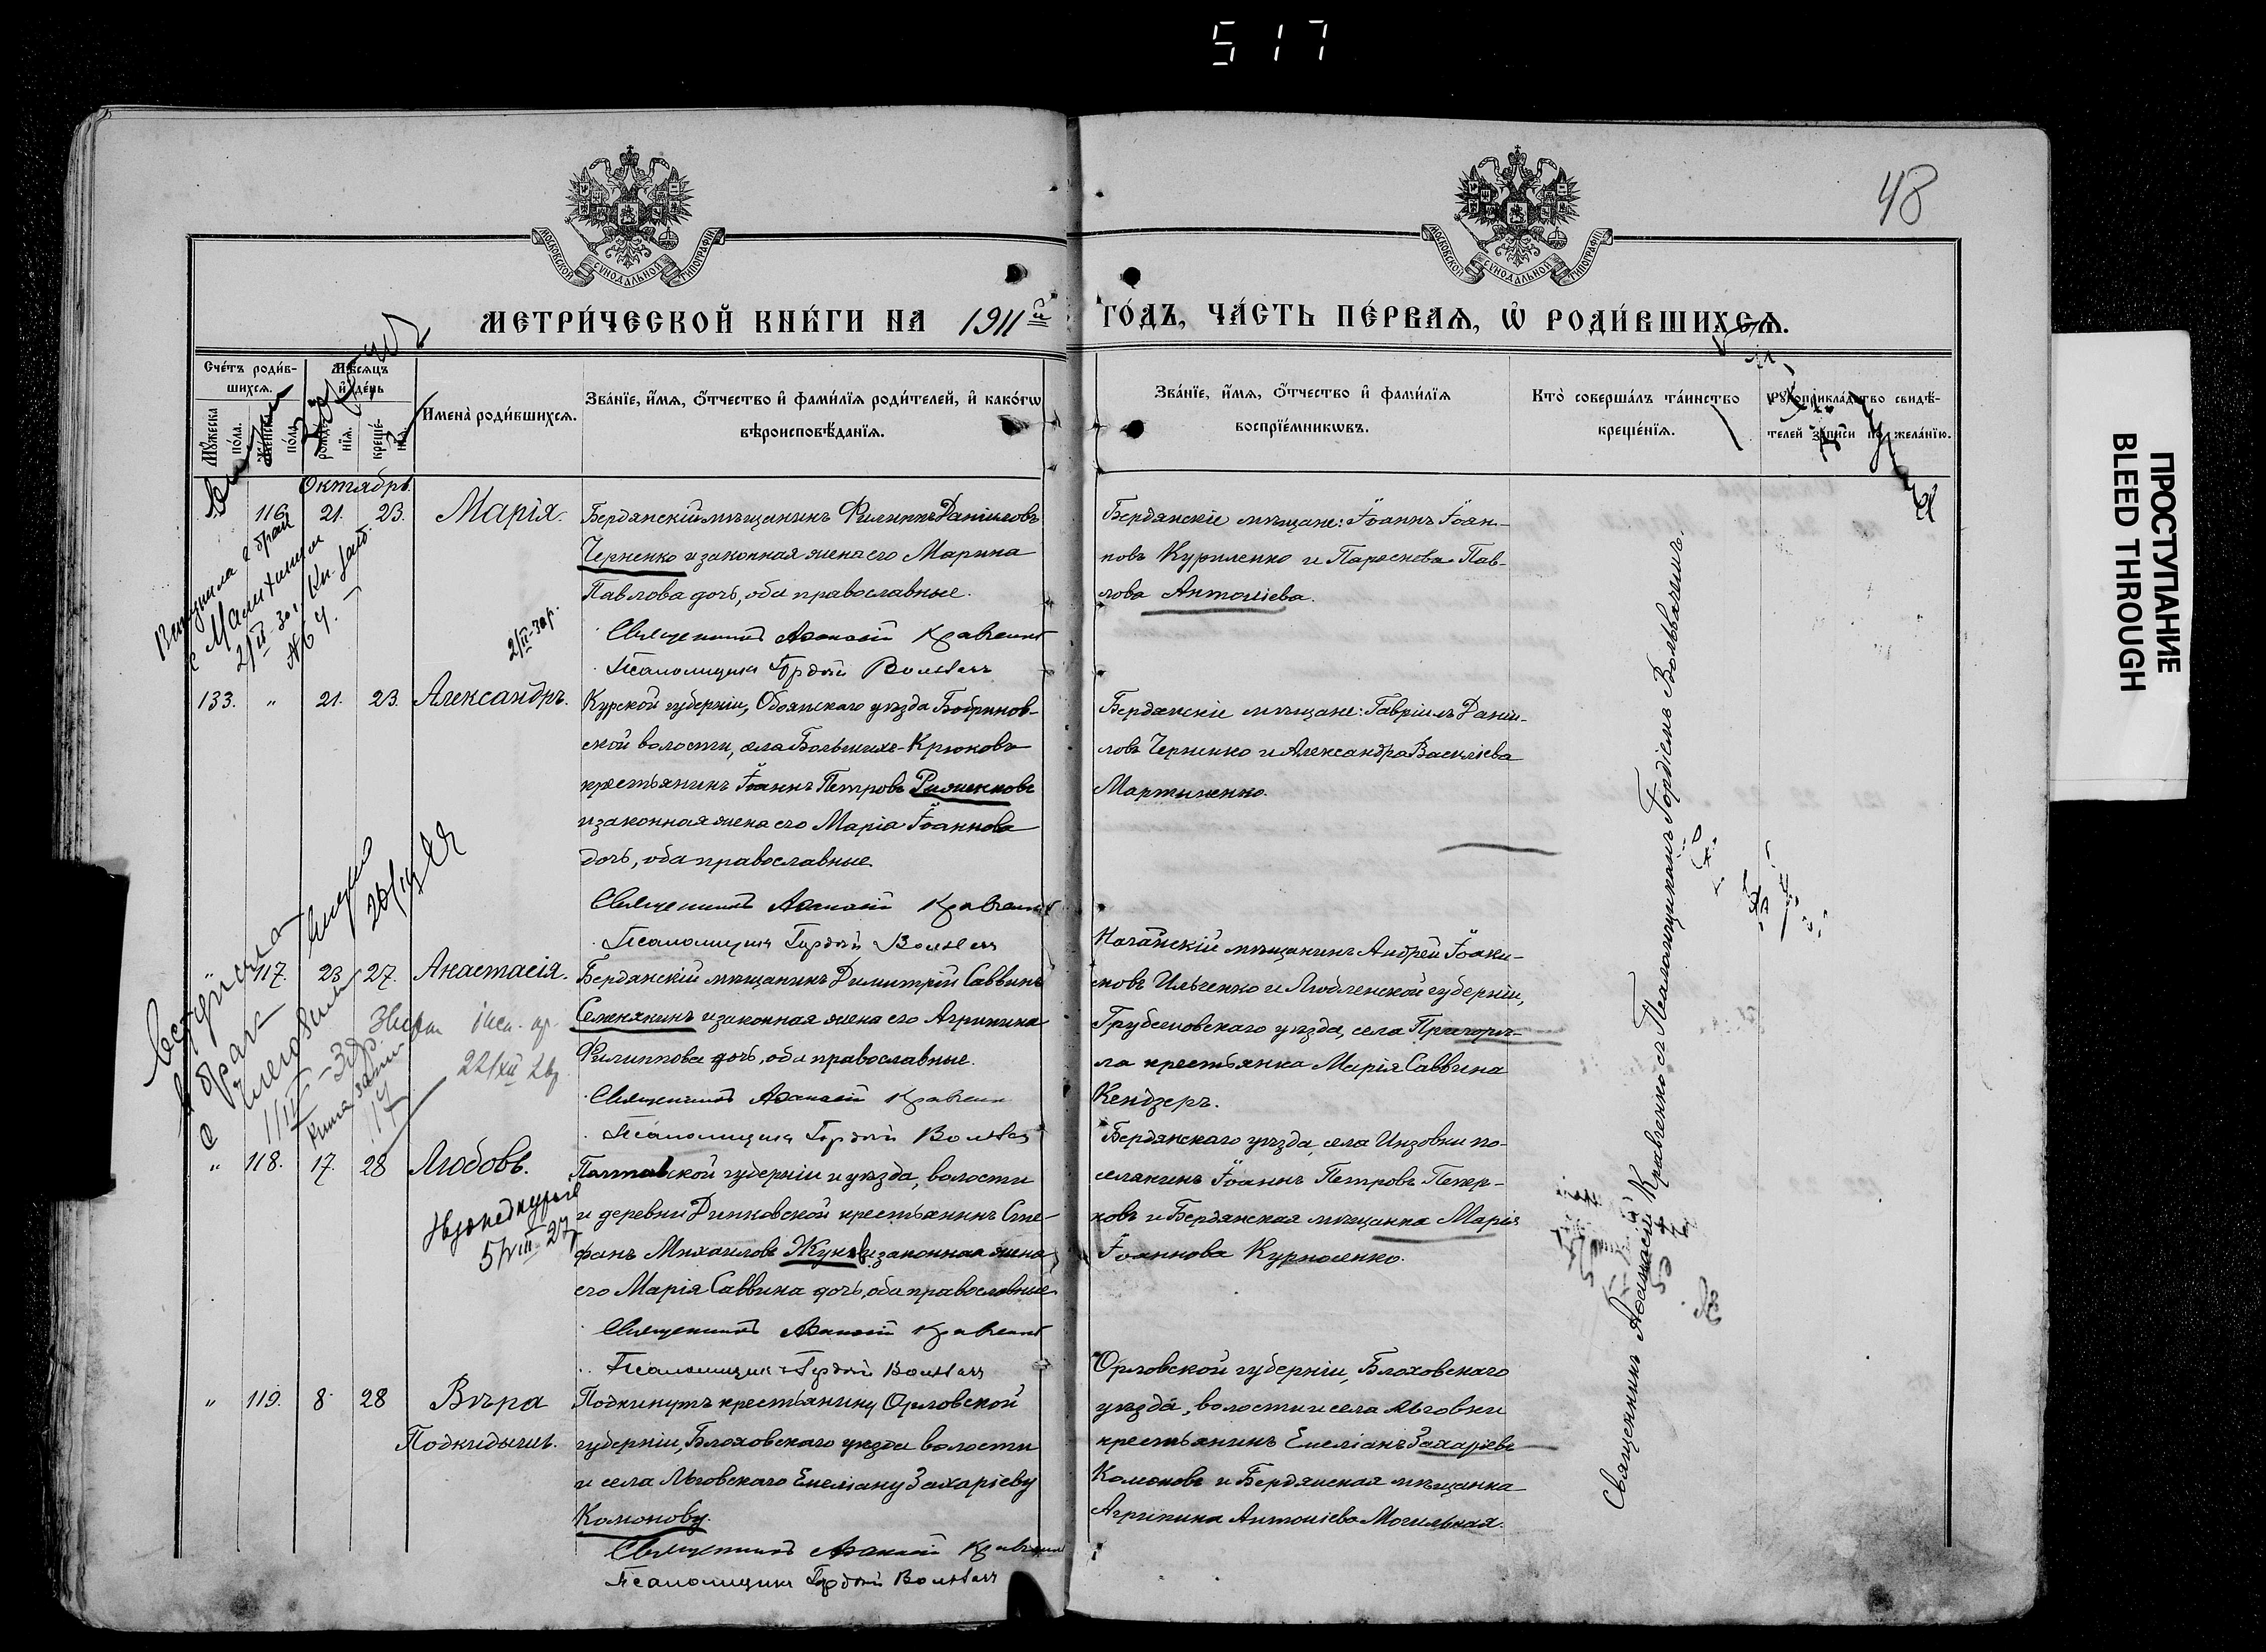 517
48
МОСКОВСКОЙ СУНОДАЛЬНОЙ ТИПОГРАФІИ
МОСКОВСКОЙ СУНОДАЛЬНОЙ ТИПОГРАФІИ
МЕТРИ́ЧЕСКОЙ КНИ́ГИ НА 1911й
ГО́ДЪ, ЧА́СТЬ ПЕ́РВАѦ, Ѡ РОДИ́ВШИХСѦ.
Сче́тъ роди́в-
шихся.
Мꙋ́жеска по́ла.
Же́нска по́ла.
Мѣ́сяцъ и де́нь
рожде́-
нїя.
креще́-
нїя.
Имена̀ роди́вшихся.
Зва́нїе, и́мя, ѻ҆́тчество и҆ фами́лїя роди́телей, и҆ како́гѡ
вѣроисповѣ́данїя.
Зва́нїе, и́мя, ѻ҆́тчество и҆ фами́лїя
воспрїе́мникѡвъ.
Кто̀ соверша́лъ та́инство
креще́нїя.
Рꙋкоприкла́дство свидѣ́-
телей за́писи по жела́нїю.
Октябрь.
116. 21. 23. Марія.
Бердянскій мѣщанинъ Филиппъ Даніиловъ
Черненко и законная жена его Марина
Павлова дочь, оба православные.
Священникъ Аѳанасій Кравченко
Псаломщикъ Гордій Волквачъ
Бердянскіе мѣщане: Іоаннъ Іоан-
новъ Куриленко и Параскева Пав-
лова Антоніева.
2/II-30 г.
133. " 21. 23. Александръ.
Курской губерніи, Обоянскаго уѣзда Бобринов-
ской волости, села Большихъ-Крюковъ
крестьянинъ Іоаннъ Петровъ
и законная жена его Марія Іоаннова
дочь, оба православные.
Священникъ Аѳанасій Кравченко
Псаломщикъ Гордій Волквачъ
Бердянскіе мѣщане: Гавріилъ Даніи-
ловъ Черненко и Александра Василіева
Мартыненко.
" 117. 23. 27. Анастасія.
Бердянскій мѣщанинъ Димитрій Саввинъ
Семенякинъ и законная жена его Агрипина
Филиппова дочь, оба православные.
Священникъ Аѳанасій Кравченко
Псаломщикъ Гордій Волквачъ
мѣщанинъ Андрей Іоаки-
мовъ Ильченко и Люблинской губерніи,
Грубешовскаго уѣзда, села
ла крестьянка Марія Саввина
Кендзеръ.
22/XII
" 118. 17. 28 Любовь.
Полтавской губерніи и уѣзда, волости
и деревни крестьянинъ Сте-
фанъ Михаиловъ Жукъ и законная жена
его Марія Саввина дочь, оба православные.
Священникъ Аѳанасій Кравченко
Псаломщикъ Гордій Волквачъ
Бердянскаго уѣзда, села Инзовки по-
селянинъ Іоаннъ Петровъ Пенер-
ковъ и Бердянская мѣщанка Марія
Іоаннова
5/VIII 27
" 119. 8. 28 Вѣра
Подкидышъ.
Подкинутъ крестьянину Орловской
губерніи, Блоховскаго уѣзда волости
и села Льговскаго Емеліану Захаріеву
Комонову.
Священникъ Аѳанасій Кравченко
Псаломщикъ Гордій Волквачъ
Орловской губерніи, Блоховскаго
уѣзда, волости и села Льговки
крестьянинъ Емеліанъ Захаріевъ
Комоновъ и Бердянская мѣщанка
Агрипина Антоніева Могильная.
Священникъ Аѳанасій Кравченко съ Псаломщикомъ Гордіемъ Волквачемъ.
ПРОСТУПАНИЕ
BLEED THROUGH